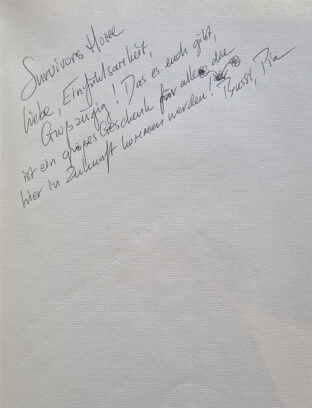 Survivors Home
Liebe, Einfühlsamkeit,
Großzügig! Das es euch gibt,
ist ein großes Geschenk für alle die
hier in Zukunft kommen werden! Bussi,